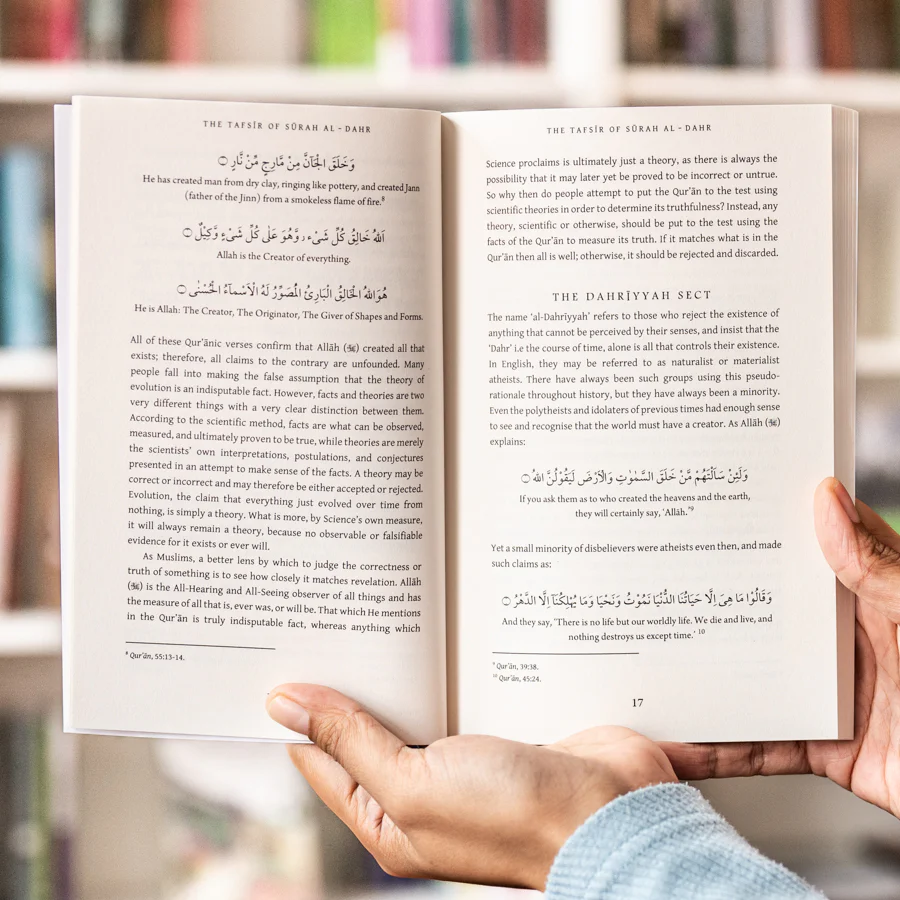 THE TAFSĪR OF SŪRAH AL - DAHR
وَخَلَقَ الْجَآنَّ مِنْ مَّارِجٍ مِّنْ نَّارٍ
He has created man from dry clay, ringing like pottery, and created Jann
(father of the Jinn) from a smokeless flame of fire.⁸
اَللهُ خَالِقُ كُلِّ شَیْءٍ وَّهُوَ عَلٰی كُلِّ شَیْءٍ وَّكِیْلٌ
Allah is the Creator of everything.
هُوَاللهُ الْخَالِقُ الْبَارِئُ الْمُصَوِّرُ لَهُ الْاَسْمآءُ الْحُسْنٰی
He is Allah: The Creator, The Originator, The Giver of Shapes and Forms.
All of these Qur'ānic verses confirm that Allāh (ﷻ) created all that
exists; therefore, all claims to the contrary are unfounded. Many
people fall into making the false assumption that the theory of
evolution is an indisputable fact. However, facts and theories are two
very different things with a very clear distinction between them.
According to the scientific method, facts are what can be observed,
measured, and ultimately proven to be true, while theories are merely
the scientists' own interpretations, postulations, and conjectures
presented in an attempt to make sense of the facts. A theory may be
correct or incorrect and may therefore be either accepted or rejected.
Evolution, the claim that everything just evolved over time from
nothing, is simply a theory. What is more, by Science's own measure,
it will always remain a theory, because no observable or falsifiable
evidence for it exists or ever will.
As Muslims, a better lens by which to judge the correctness or
truth of something is to see how closely it matches revelation. Allāh
(ﷻ) is the All-Hearing and All-Seeing observer of all things and has
the measure of all that is, ever was, or will be. That which He mentions
in the Qur'ān is truly indisputable fact, whereas anything which
⁸ Qur'ān, 55:13-14.
THE TAFSĪR OF SŪRAH AL - DAHR
Science proclaims is ultimately just a theory, as there is always the
possibility that it may later yet be proved to be incorrect or untrue.
So why then do people attempt to put the Qur'ān to the test using
scientific theories in order to determine its truthfulness? Instead, any
theory, scientific or otherwise, should be put to the test using the
facts of the Qur'ān to measure its truth. If it matches what is in the
Qur'ān then all is well; otherwise, it should be rejected and discarded.
THE DAHRĪYYAH SECT
The name 'al-Dahriyyah' refers to those who reject the existence of
anything that cannot be perceived by their senses, and insist that the
'Dahr' i.e the course of time, alone is all that controls their existence.
In English, they may be referred to as naturalist or materialist
atheists. There have always been such groups using this pseudo-
rationale throughout history, but they have always been a minority.
Even the polytheists and idolaters of previous times had enough sense
to see and recognise that the world must have a creator. As Allāh (ﷻ)
explains:
وَلَئِنْ سَاَلْتَهُمْ مَّنْ خَلَقَ السَّمٰوٰتِ وَالْاَرْضَ لَیَقُوْلُنَّ اللهُ
If you ask them as to who created the heavens and the earth,
they will certainly say, 'Allāh.'⁹
Yet a small minority of disbelievers were atheists even then, and made
such claims as:
وَقَالُوْا مَا هِیَ اِلَّا حَیَاتُنَا الدُّنْیَا نَمُوْتُ وَنَحْیَا وَمَا یُهْلِكُنَآ اِلَّا الدَّهْرُ
And they say, 'There is no life but our worldly life. We die and live, and
nothing destroys us except time.' ¹⁰
⁹ Qur'ān, 39:38.
¹⁰ Qur'ān, 45:24.
17